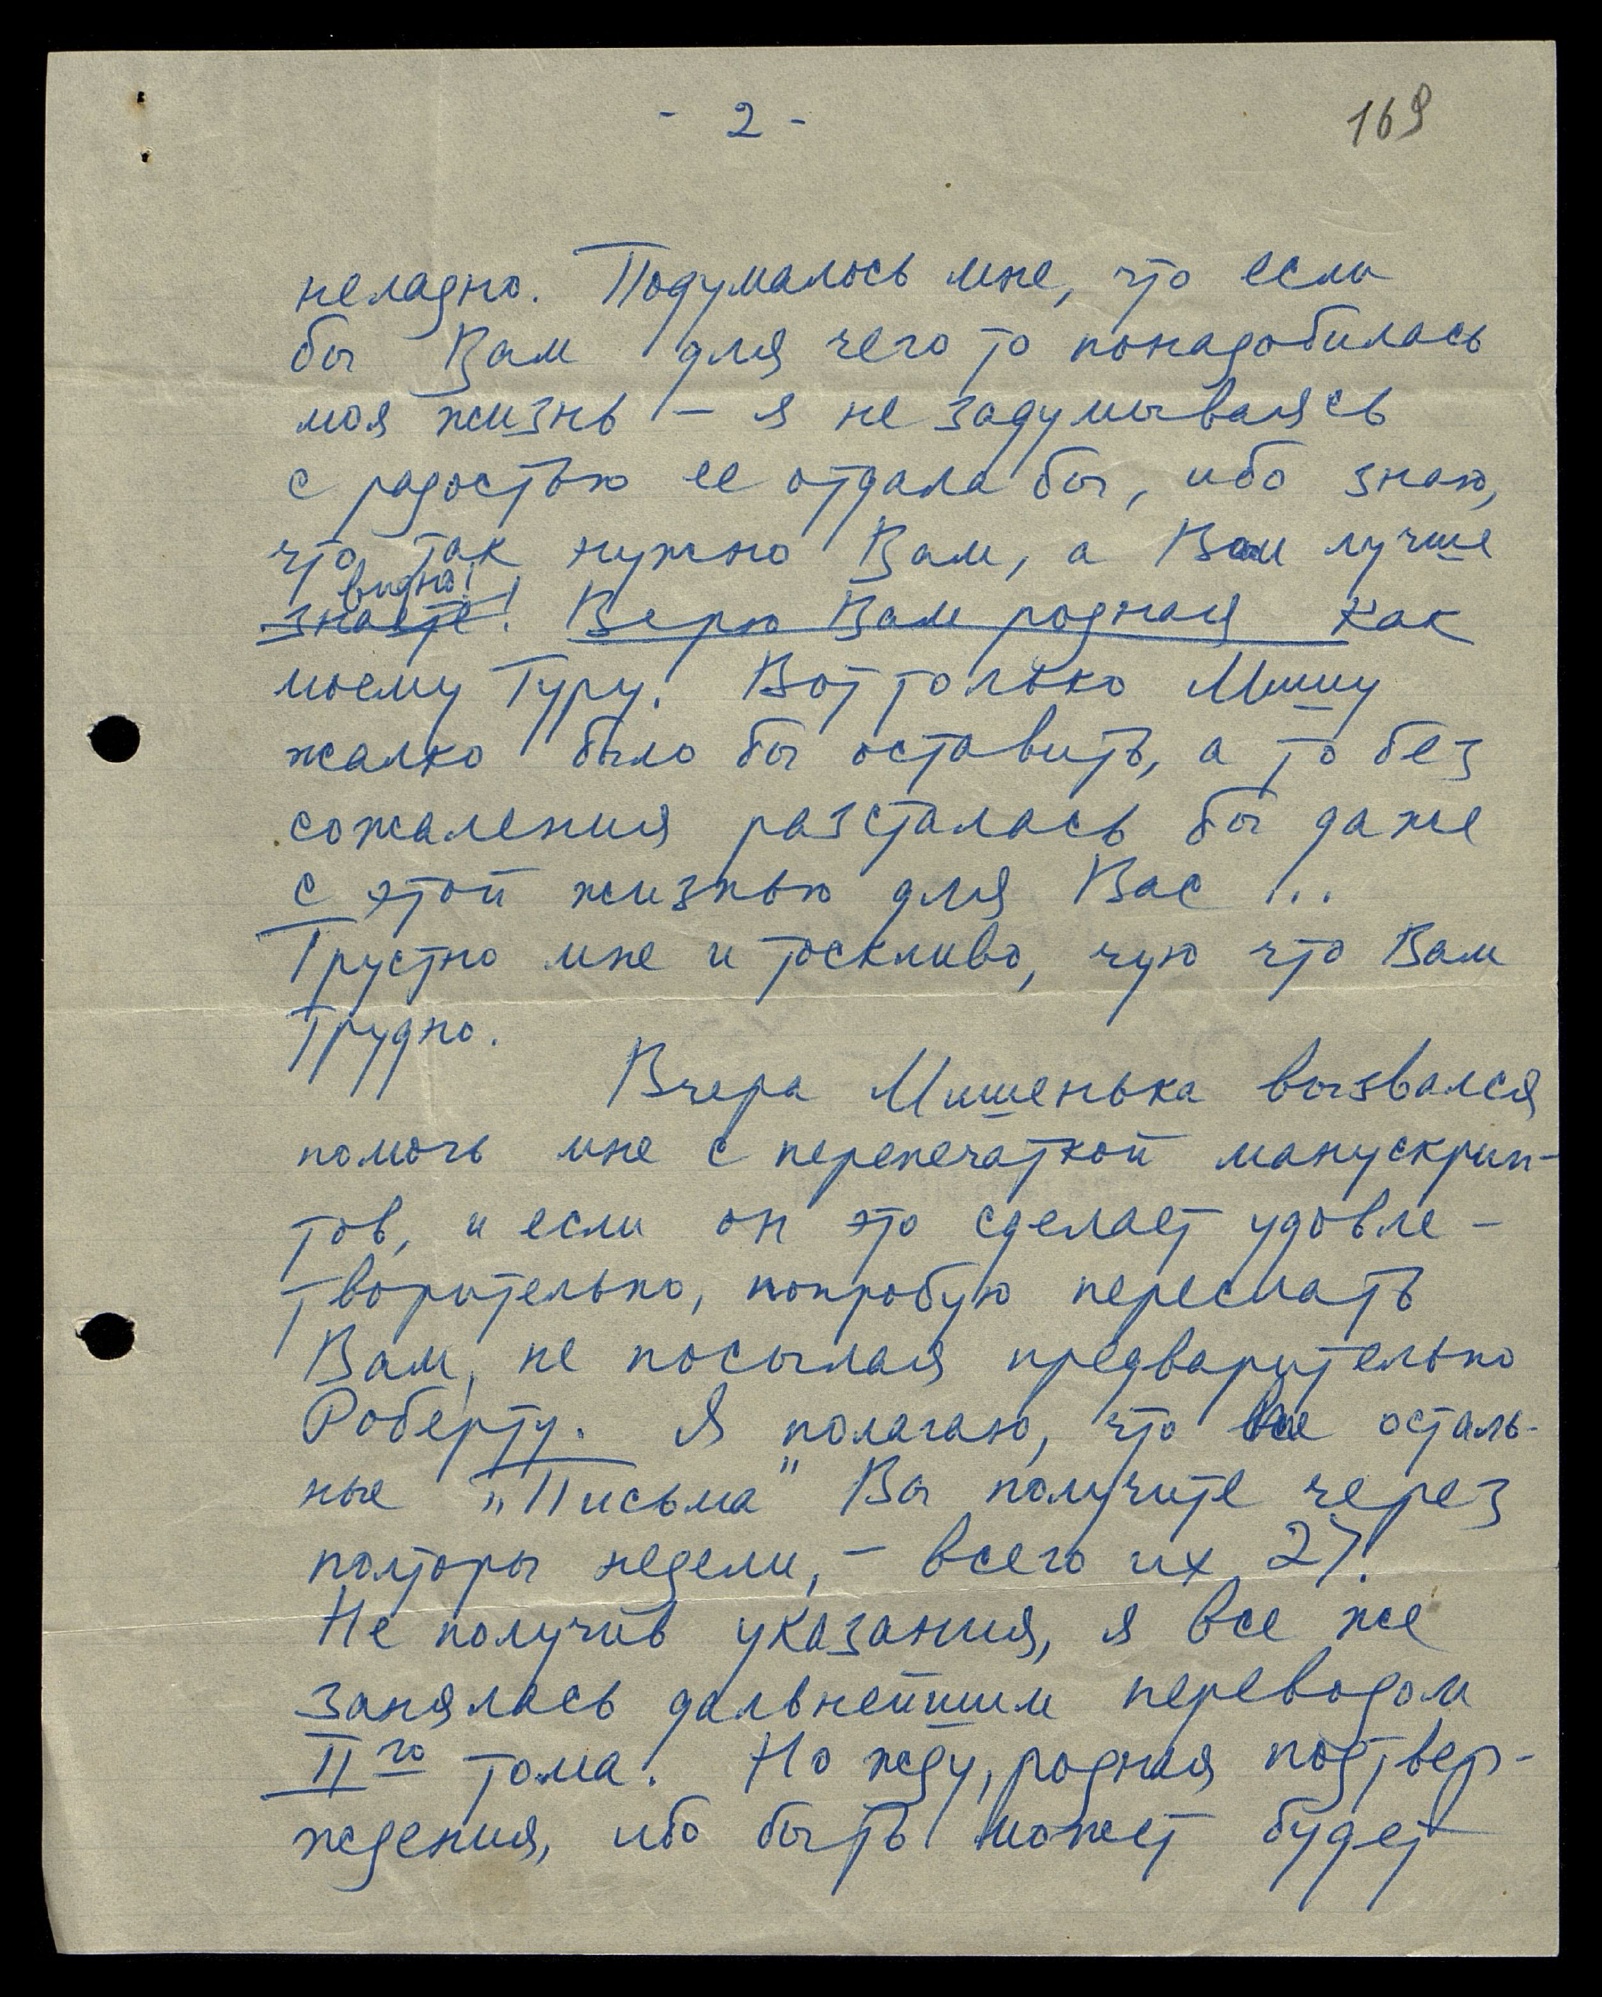 - 2 -
169
неладно. Подумалось мне, что если
бы Вам для чего то понадобилась
моя жизнь – я не задумываясь
с радостью ее отдала бы, ибо знаю,
что так нужно Вам, а Вам лучше
видно!
знаете! Верю Вам родная как
моему Гуру. Вот только Мишу
жалко было бы оставить, а то без
сожаления разсталась бы даже
с этой жизнью для Вас ...
Грустно мне и тоскливо, чую что Вам
трудно.
Вчера Мишенька вызвался
помочь мне с перепечаткой манускрип-
тов, и если он это сделает удовле-
творительно, попробую переслать
Вам, не посылая предварительно
Роберту. Я полагаю, что все осталь-
ные „Письма" Вы получите через
полторы недели, – всего их 27.
Не получив указания, я все же
занялась дальнейшим переводом
II го тома. Но жду, родная подтвер-
ждения, ибо быть может будет